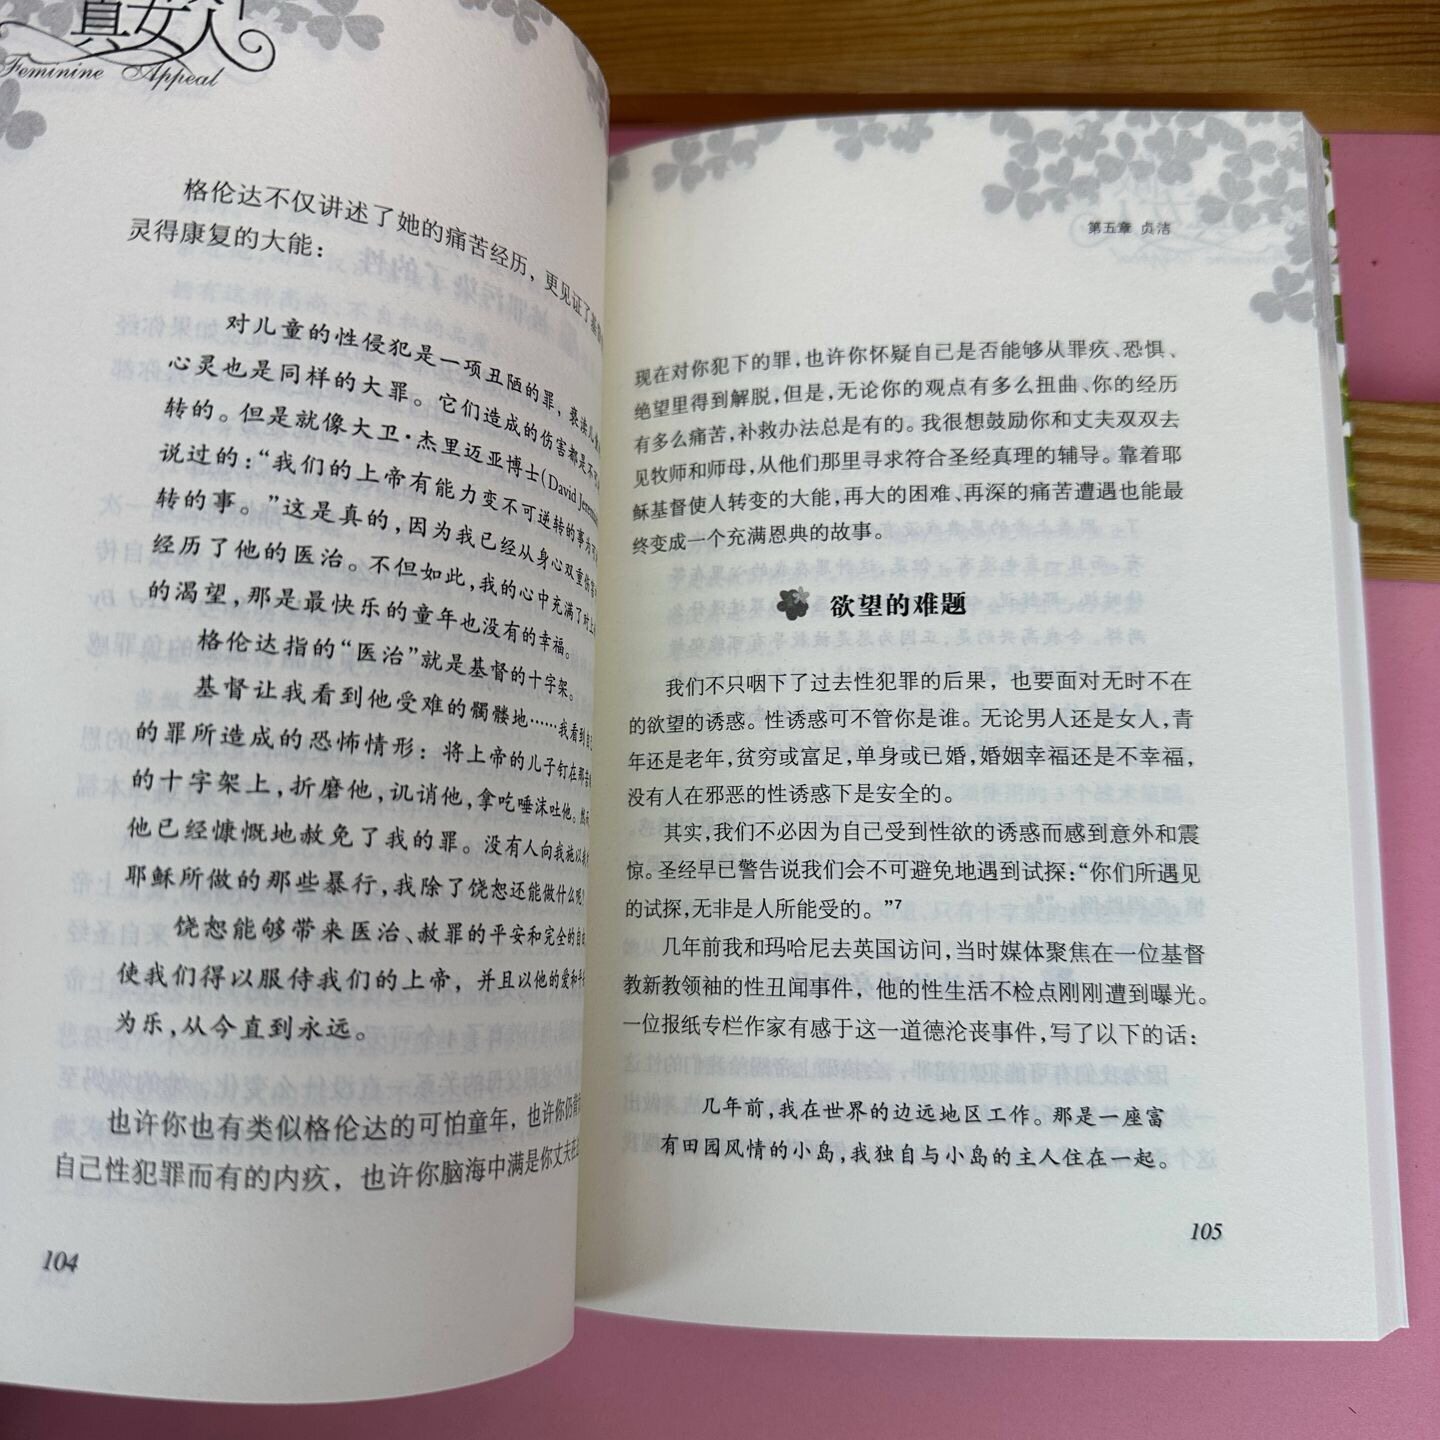 真女人
Feminine Appeal
格伦达不仅讲述了她的痛苦经历，更见证了基
灵得康复的大能：
对儿童的性侵犯是一项丑陋的罪，亵渎儿童
心灵也是同样的大罪。它们造成的伤害都是不可
转的。但是就像大卫·杰里迈亚博士(David Jeremi
说过的：“我们的上帝有能力变不可逆转的事为可
转的事。”这是真的，因为我已经从身心双重伤害
经历了他的医治。不但如此，我的心中充满了对上
的渴望，那是最快乐的童年也没有的幸福。
格伦达指的“医治”就是基督的十字架。
基督让我看到他受难的髑髅地……我看到
的罪所造成的恐怖情形：将上帝的儿子钉在那
的十字架上，折磨他，讥诮他，拿吃唾沫吐他。然
他已经慷慨地赦免了我的罪。没有人向我施以
耶稣所做的那些暴行，我除了饶恕还能做什么呢？
饶恕能够带来医治、赦罪的平安和完全的自
使我们得以服侍我们的上帝，并且以他的爱和
为乐，从今直到永远。
也许你也有类似格伦达的可怕童年，也许你仍
自己性犯罪而有的内疚，也许你脑海中满是你丈夫在
104
第五章 贞洁
现在对你犯下的罪，也许你怀疑自己是否能够从罪疚、恐惧、
绝望里得到解脱，但是，无论你的观点有多么扭曲、你的经历
有多么痛苦，补救办法总是有的。我很想鼓励你和丈夫双双去
见牧师和师母，从他们那里寻求符合圣经真理的辅导。靠着耶
稣基督使人转变的大能，再大的困难、再深的痛苦遭遇也能最
终变成一个充满恩典的故事。
欲望的难题
我们不只咽下了过去性犯罪的后果，也要面对无时不在
的欲望的诱惑。性诱惑可不管你是谁。无论男人还是女人，青
年还是老年，贫穷或富足，单身或已婚，婚姻幸福还是不幸福，
没有人在邪恶的性诱惑下是安全的。
其实，我们不必因为自己受到性欲的诱惑而感到意外和震
惊。圣经早已警告说我们会不可避免地遇到试探：“你们所遇见
的试探，无非是人所能受的。”7
几年前我和玛哈尼去英国访问，当时媒体聚焦在一位基督
教新教领袖的性丑闻事件，他的性生活不检点刚刚遭到曝光。
一位报纸专栏作家有感于这一道德沦丧事件，写了以下的话：
几年前，我在世界的边远地区工作。那是一座富
有田园风情的小岛，我独自与小岛的主人住在一起。
105